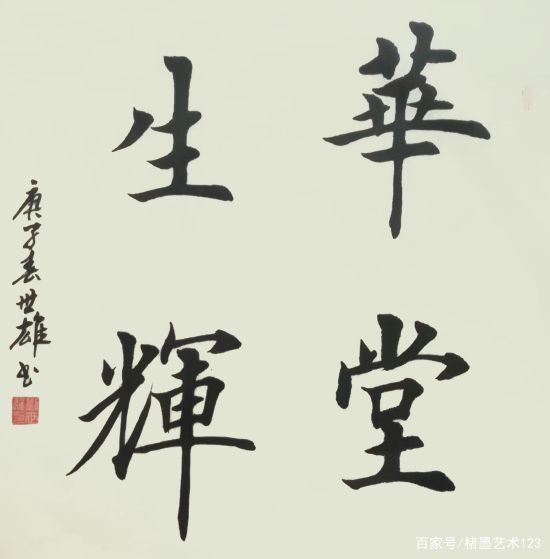 華堂
生輝
庚子春世雄书
百家号/楮墨艺术123